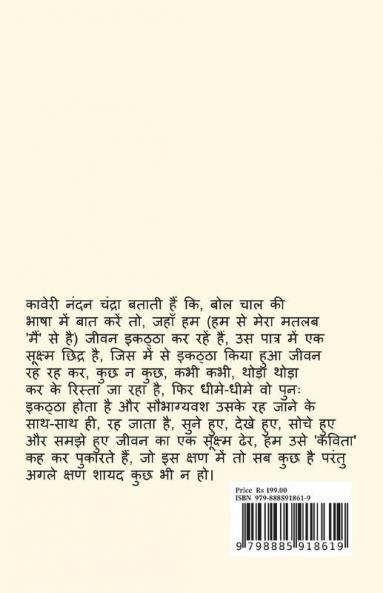 कावेरी नंदन चंद्रा बताती हैं कि, बोल चाल की
भाषा में बात करें तो, जहाँ हम (हम से मेरा मतलब
'मैं' से है) जीवन इकठ्ठा कर रहें हैं, उस पात्र में एक
सूक्ष्म छिद्र है, जिस में से इकठ्ठा किया हुआ जीवन
रह रह कर, कुछ न कुछ, कभी कभी, थोड़ा थोड़ा
कर के रिस्ता जा रहा है, फिर धीमे-धीमे वो पुनः
इकठ्ठा होता है और सौभाग्यवश उसके रह जाने के
साथ-साथ ही, रह जाता है, सुने हुए, देखे हुए, सोचे हुए
और समझे हुए जीवन का एक सूक्ष्म ढेर, हम उसे 'कविता'
कह कर पुकारते हैं, जो इस क्षण में तो सब कुछ है परंतु
अगले क्षण शायद कुछ भी न हो।
Price Rs 199.00
ISBN 979-888591861-9
9 798885 918619